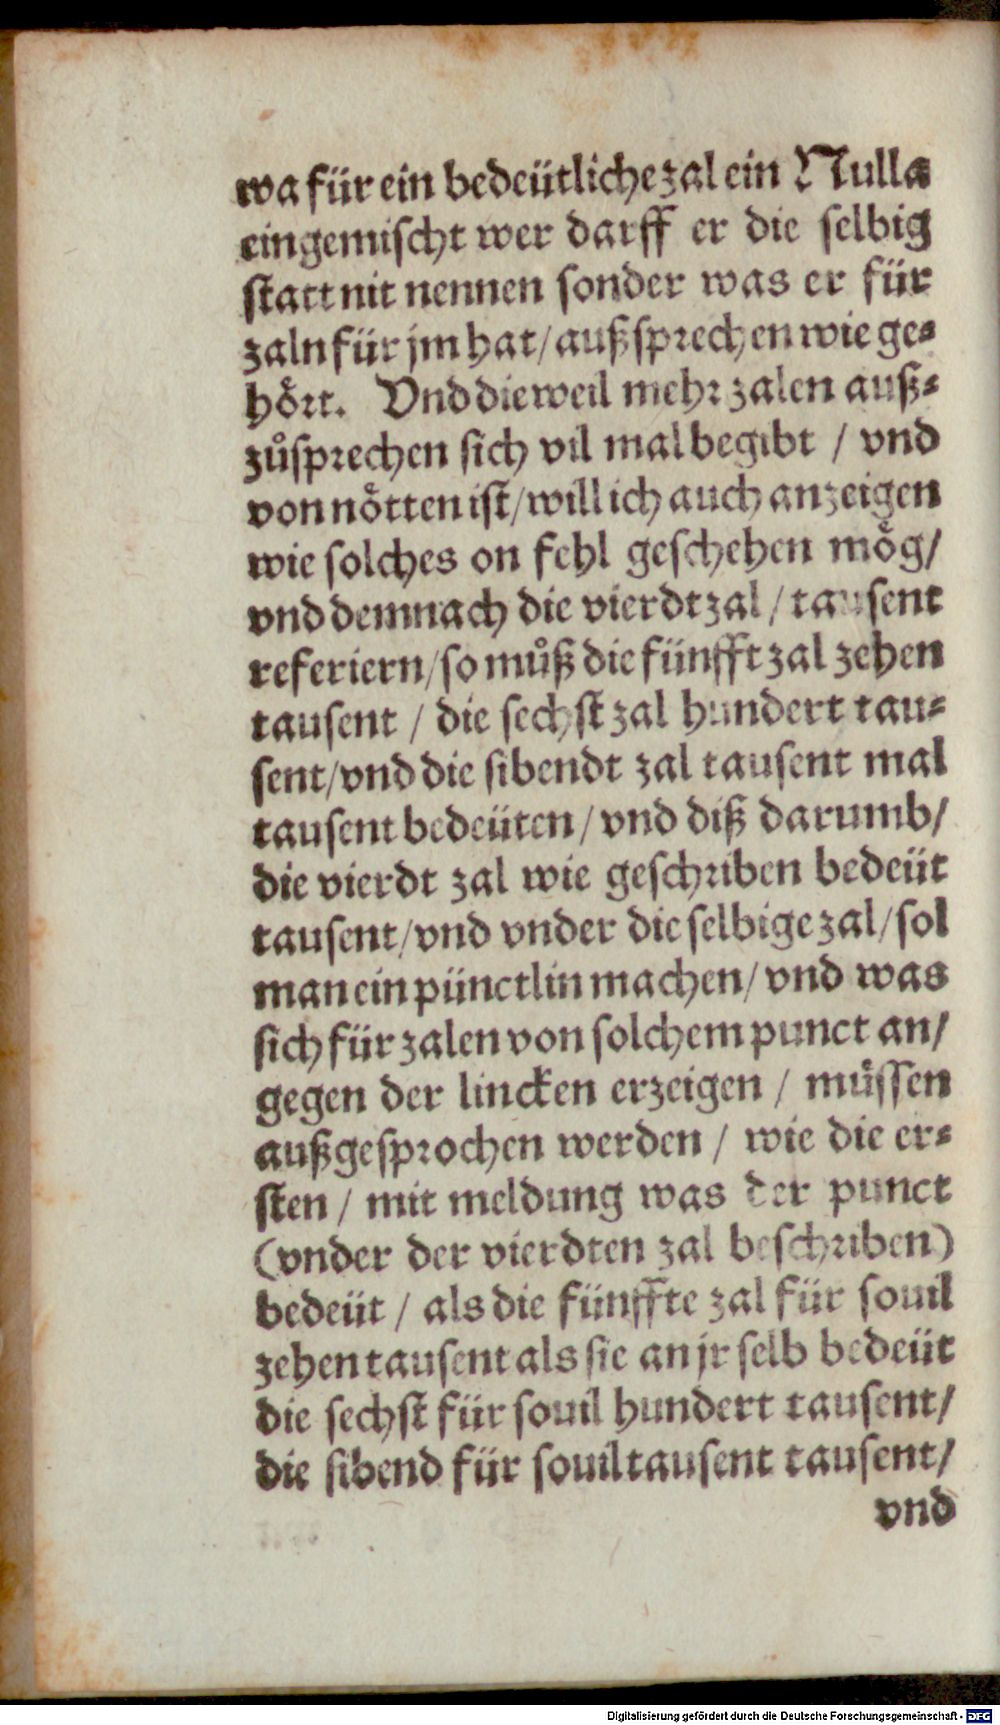 wa für ein bedeütliche zal ein Nulla
eingemischt wer darff er die selbig
statt nit nennen sonder was er für
zaln für jm hat/ außsprechen wie ge-
hoͤrt. Vnd dieweil mehr zalen auß-
zůsprechen sich vil mal begibt / vnd
von noͤtten ist/ will ich auch anzeigen
wie solches on fehl geschehen moͤg/
vnd demnach die vierdt zal / tausent
referiern/ so můß die fünfft zal zehen
tausent / die sechst zal hundert tau-
sent/ vnd die sibendt zal tausent mal
tausent bedeüten/ vnd diß darumb/
die vierdt zal wie geschriben bedeüt
tausent/ vnd vnder die selbige zal/ sol
man ein pünctlin machen/ vnd was
sich für zalen von solchem punct an/
gegen der lincken erzeigen / muͤssen
außgesprochen werden / wie die er-
sten / mit meldung was der punct
(vnder der vierdten zal beschriben)
bedeüt / als die fünffte zal für souil
zehen tausent als sie an jr selb bedeüt
die sechst für souil hundert tausent/
die sibend für souil tausent tausent/
vnd
Digitalisierung gefördert durch die Deutsche Forschungsgemeinschaft - DFG